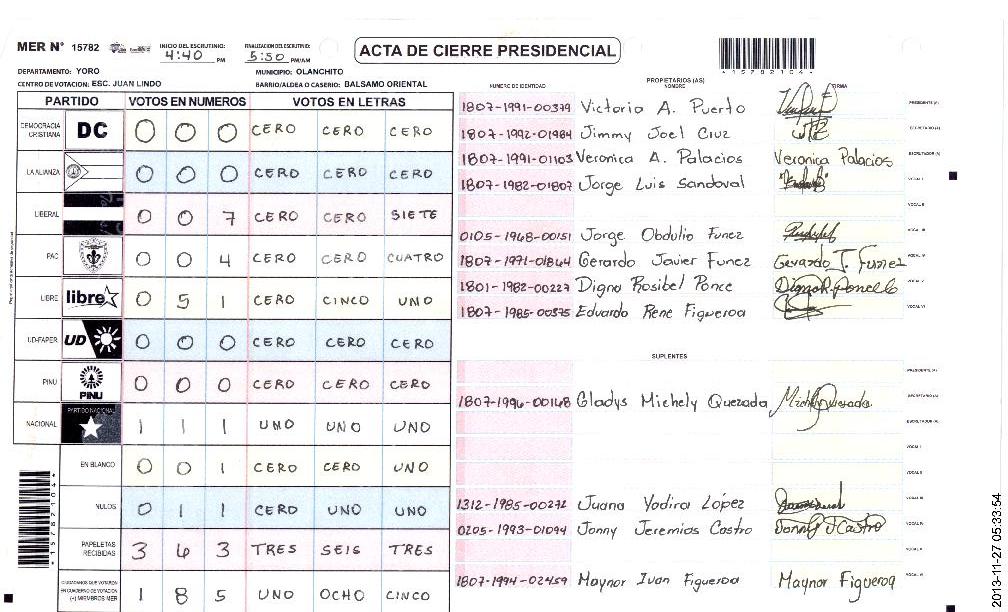 MER Nº 15782
INICIO DEL ESCRUTINIO: 4:40 PM
FINALIZACION DEL ESCRUTINIO: 5:50 PM/AM
ACTA DE CIERRE PRESIDENCIAL
*15782104*
DEPARTAMENTO: YORO
MUNICIPIO: OLANCHITO
CENTRO DE VOTACION: ESC. JUAN LINDO
BARRIO/ALDEA O CASERIO: BALSAMO ORIENTAL
PARTIDO VOTOS EN NUMEROS VOTOS EN LETRAS
DEMOCRACIA CRISTIANA DC 0 0 0 CERO CERO CERO
LA ALIANZA 0 0 0 CERO CERO CERO
LIBERAL 0 0 7 CERO CERO SIETE
PAC 0 0 4 CERO CERO CUATRO
LIBRE libre 0 5 1 CERO CINCO UNO
UD-FAPER UD 0 0 0 CERO CERO CERO
PINU PINU 0 0 0 CERO CERO CERO
NACIONAL PARTIDO NACIONAL 1 1 1 UNO UNO UNO
EN BLANCO 0 0 1 CERO CERO UNO
NULOS 0 1 1 CERO UNO UNO
PAPELETAS RECIBIDAS 3 6 3 TRES SEIS TRES
CIUDADANOS QUE VOTARON EN CUADERNO DE VOTACION (+) MIEMBROS MER 1 8 5 UNO OCHO CINCO
*15782104*
PROPIETARIOS (AS)
NUMERO DE IDENTIDAD NOMBRE FIRMA
1807-1991-00379 Victoria A. Puerto PRESIDENTE (A)
1807-1992-01984 Jimmy Joel Cruz SECRETARIO (A)
1807-1991-01103 Veronica A. Palacios Veronica Palacios ESCRUTADOR (A)
1807-1982-01807 Jorge Luis Sandoval VOCAL I
VOCAL II
0105-1968-00151 Jorge Obdulio Funez VOCAL III
1807-1971-01844 Gerardo Javier Funez Gerardo J. Funez VOCAL IV
1801-1982-00227 Digna Rosibel Ponce VOCAL V
1807-1985-00375 Eduardo René Figueroa VOCAL VI
SUPLENTES
PRESIDENTE (A)
1807-1996-00168 Gladys Michely Quezada Michely Quezada SECRETARIO (A)
ESCRUTADOR (A)
VOCAL I
VOCAL II
1312-1985-00272 Juana Yadira López VOCAL III
0205-1993-01094 Jonny Jeremias Castro Jonny J Castro VOCAL IV
VOCAL V
1807-1994-02459 Maynor Ivan Figueroa Maynor Figueroa VOCAL VI
2013-11-27 05:33:54